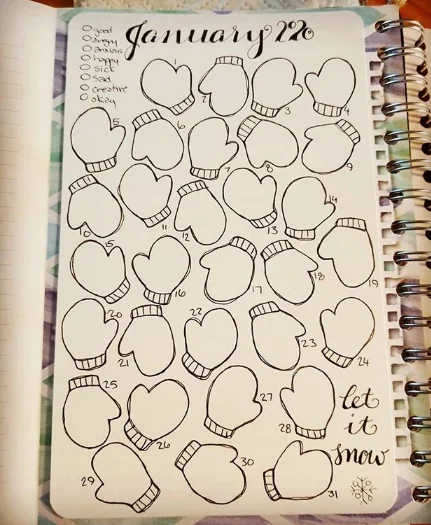 January 2020
good
angry
anxious
happy
sick
sad
creative
okay
1
2
3
4
5
6
7
8
9
10
11
12
13
14
15
16
17
18
19
20
21
22
23
24
25
26
27
28
29
30
31
let
it
snow